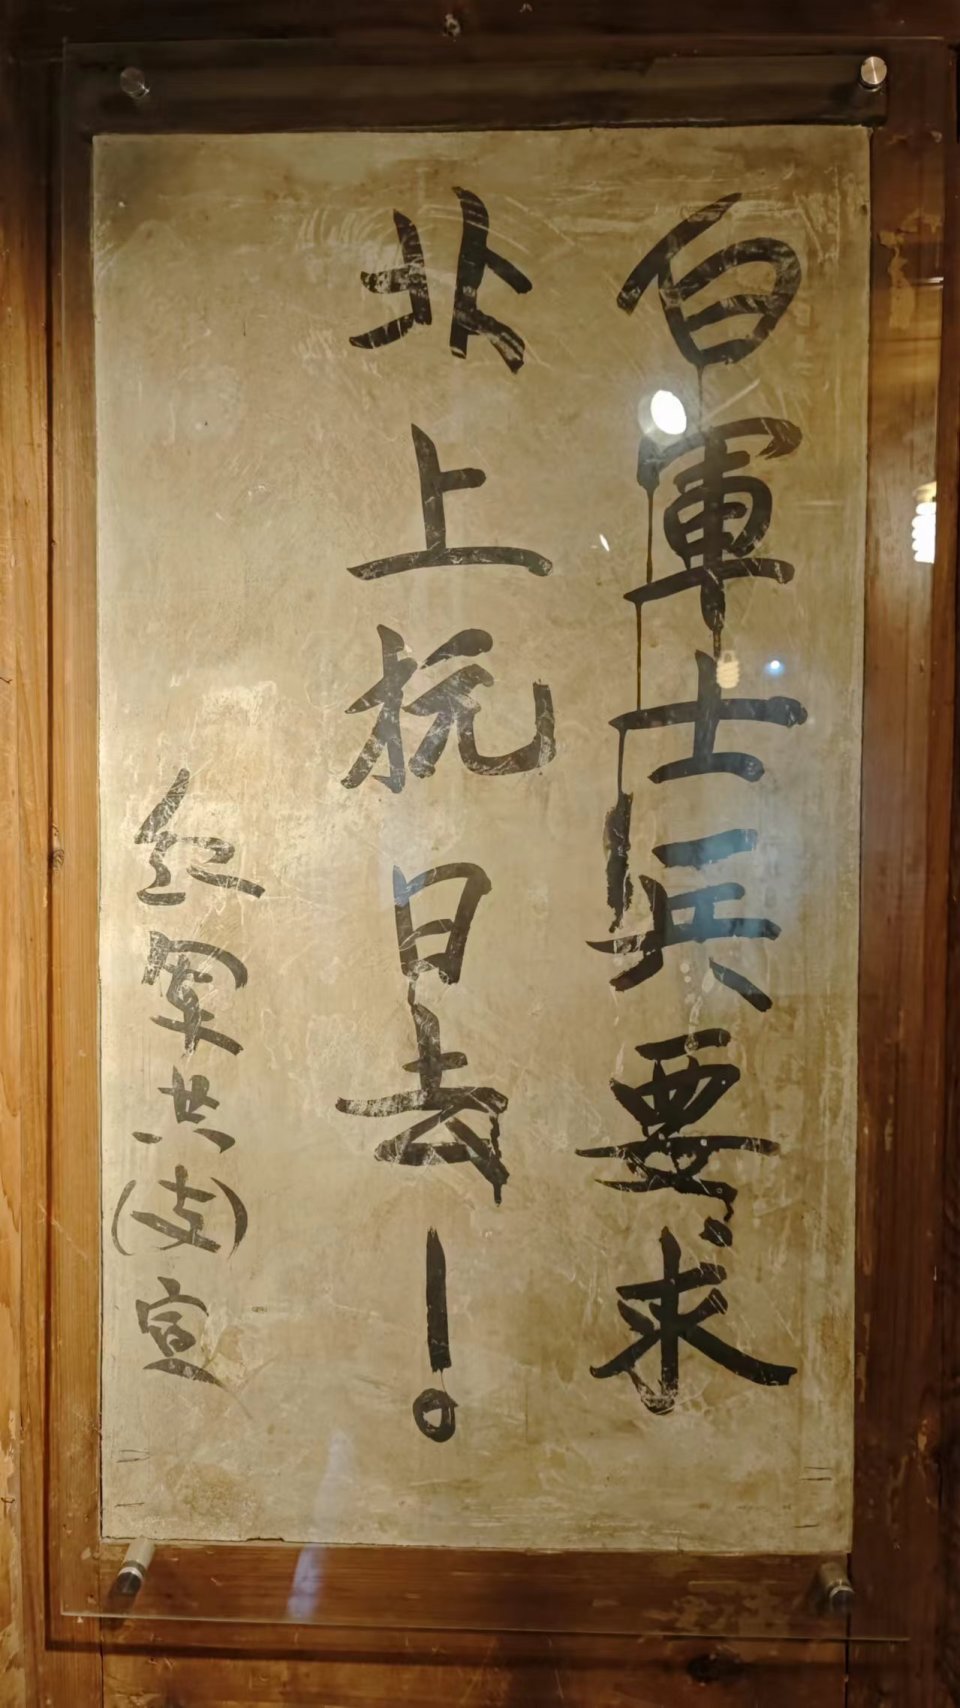 白軍士兵要求
北上抗日去！
红军共(支)宣